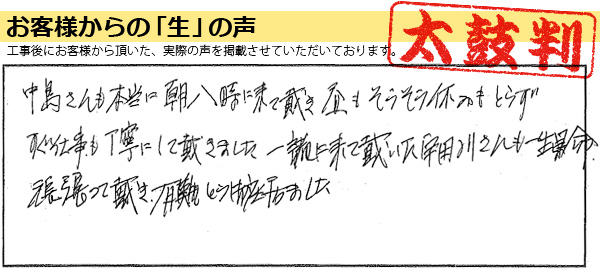 お客様からの「生」の声
太鼓判
工事後にお客様から頂いた、実際の声を掲載させていただいております。
中島さんも本当に朝八時に来て戴き昼もそうそう休みもとらず
すぐ仕事も丁寧にして戴きました 一諸に来て戴いた 川さんも一生懸命
頑張って戴き、有難とう御座居ました